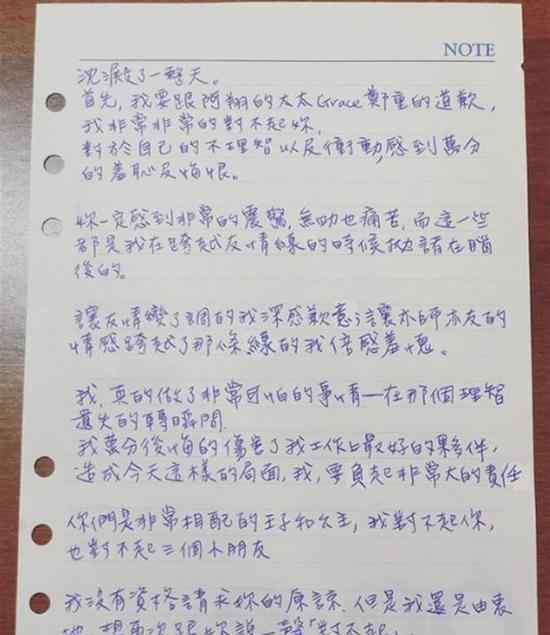 NOTE
沈澱了一整天。
首先,我要跟阿翔的太太Grace鄭重的道歉,
我非常非常的對不起妳,
對於自己的不理智以及衝動,感到萬分
的羞恥及悔恨。
妳一定感到非常的震驚,無助也痛苦,而這一些
都是我在跨越友情線的時候拋諸在腦
後的。
讓友情變了調的我深感歉意;讓亦師亦友的
情感跨越了那條線的我倍感羞愧。
我,真的做了非常可怕的事情—在那個理智
遺失的轉瞬間.
我萬分後悔的傷害了我工作上最好的夥伴,
造成今天這樣的局面,我,要負起非常大的責任
你們是非常相配的王子和公主,我對不起你,
也對不起三個小朋友
我沒有資格請求妳的原諒.但是我還是由衷
地,想再次跟妳說一聲「對不起」